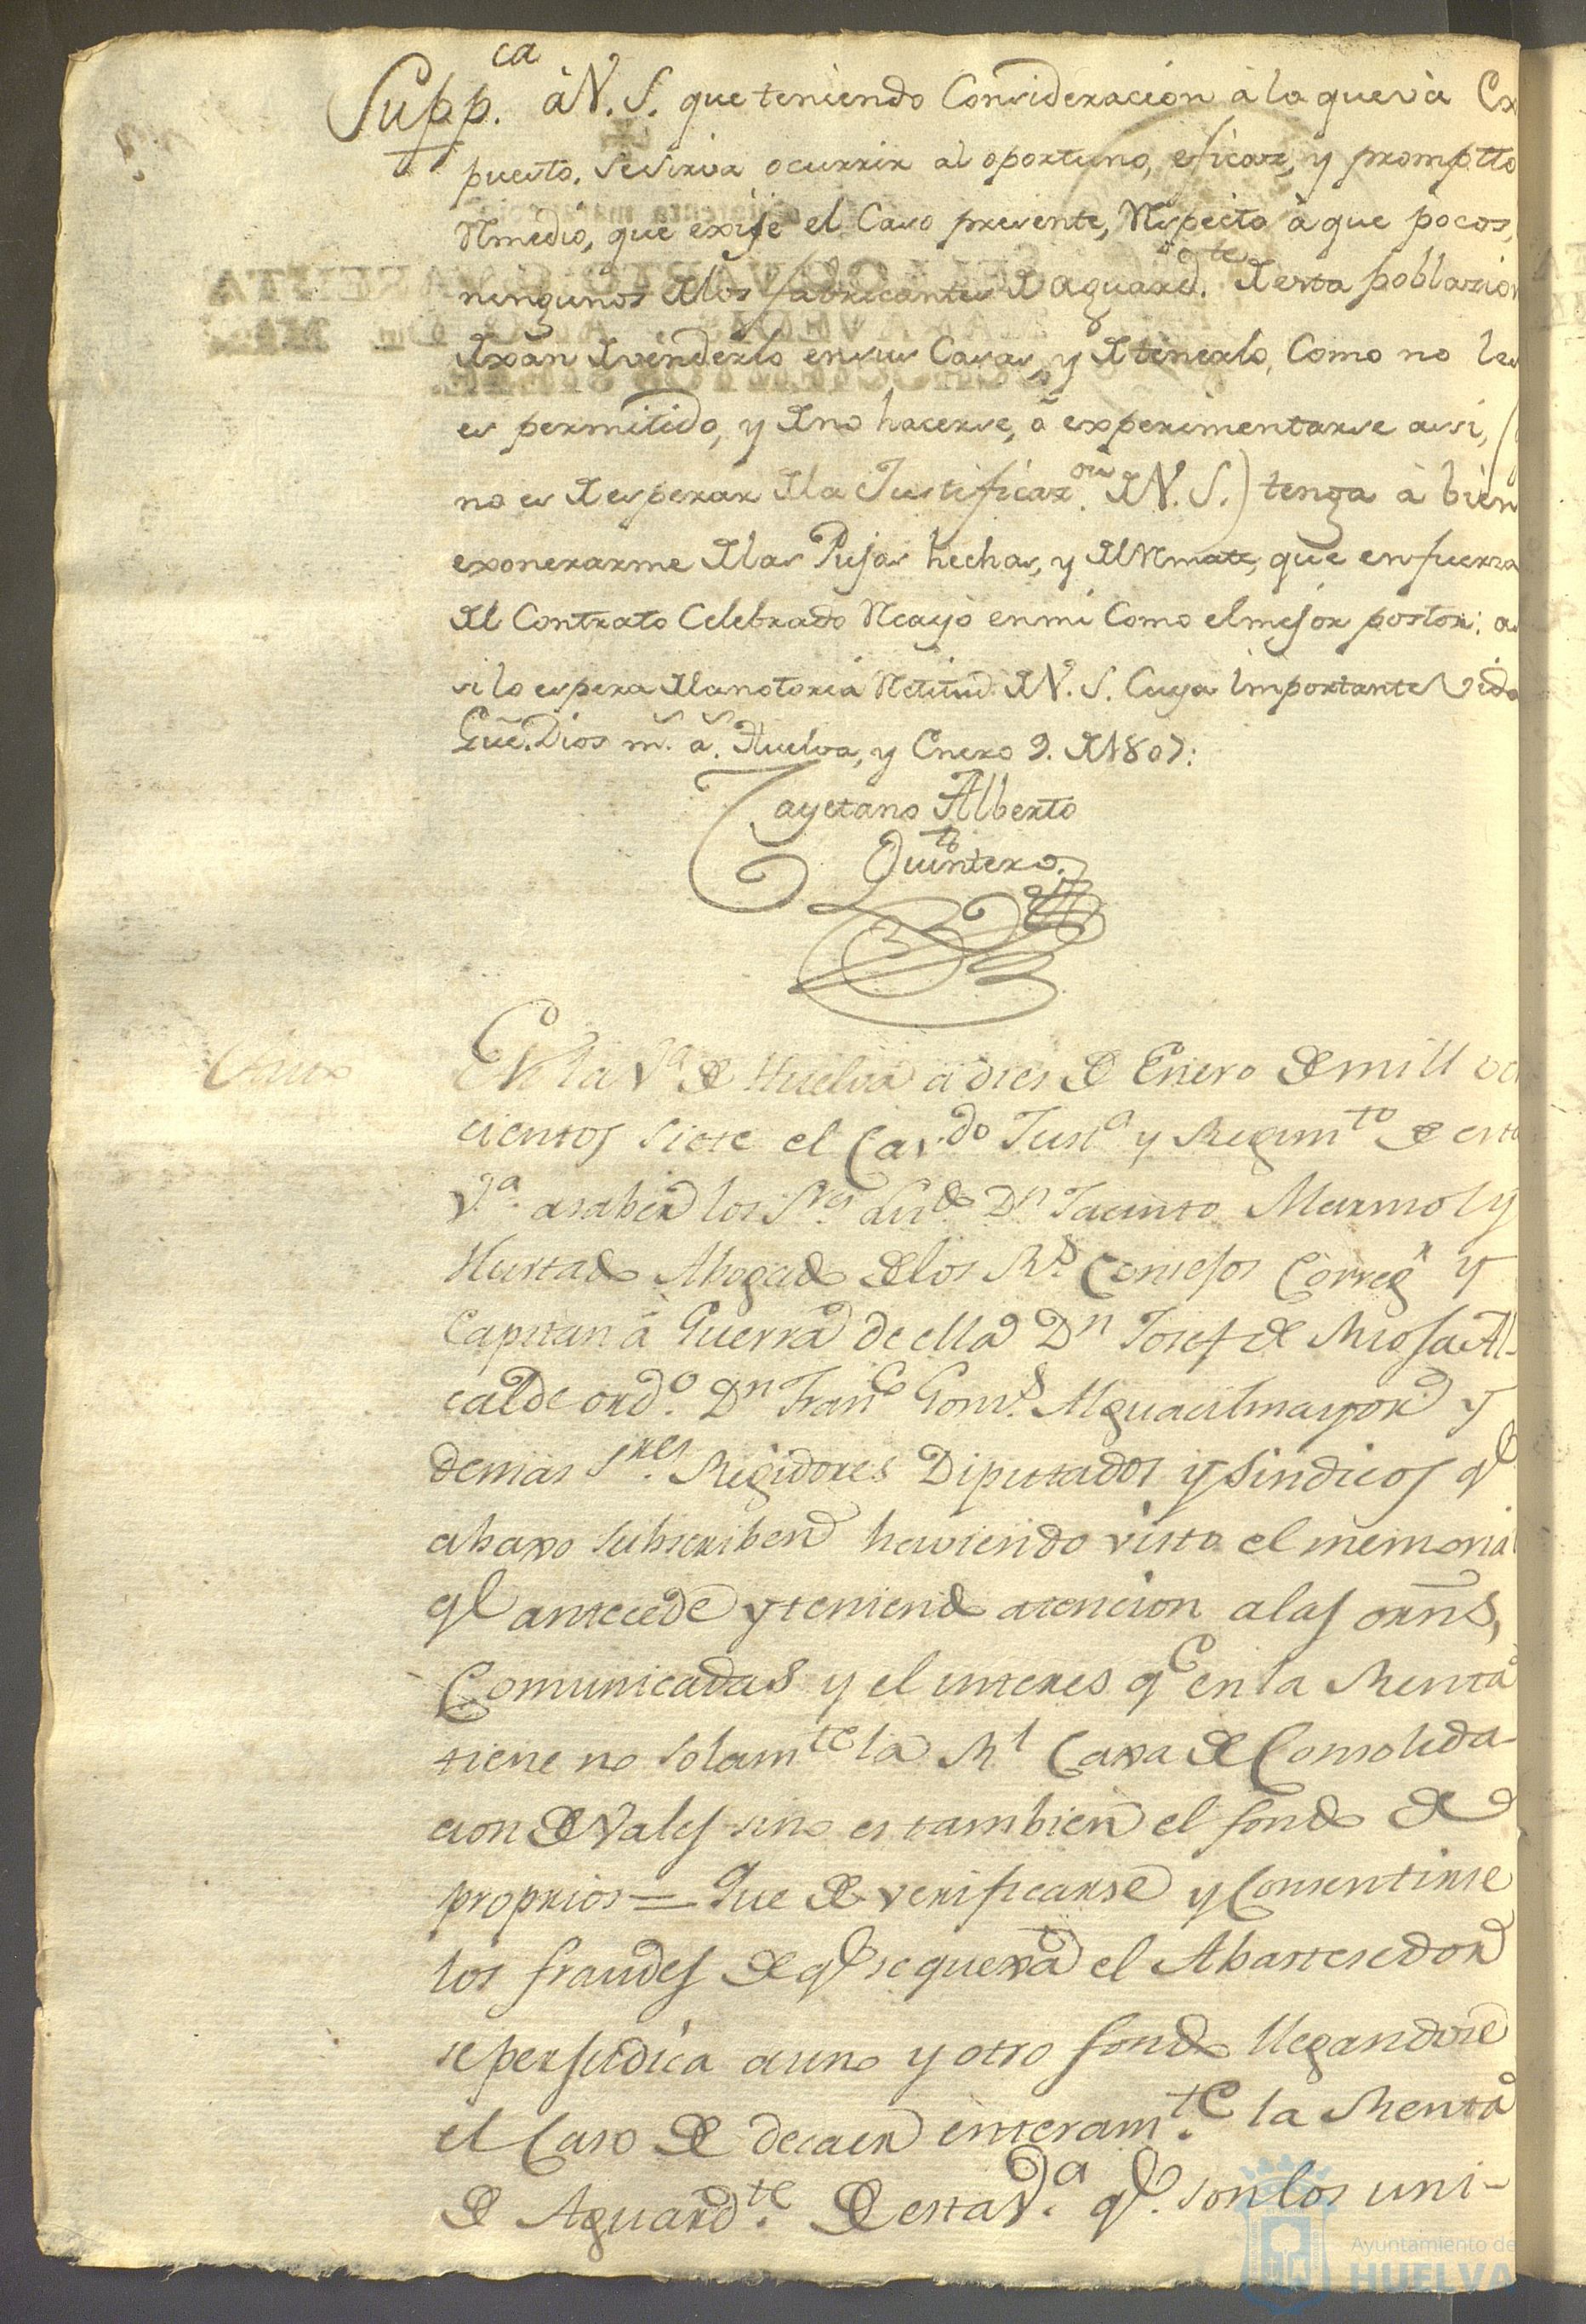 Supp.ca à V. S. que teniendo Consideracion à lo que và Ex
puesto, se sirva ocurrir al oportuno, eficaz, y promptto
Remedio, que exije el Caso presente, Respecto à que pocos,
ningunos de los fabricantes de aguard.te de esta poblazion
dexãn de venderlo en sus Casas, y de tenerlo, Como no les
es permitido, y de no hacerse, ò experimentarse assi, (
no es de esperar de la Justificaz.on de V. S.) tenga à bien
exonerarme de las Pujas hechas, y del Remate, que en fuerza
del Contrato Celebrado Recayó en mi Como el mejor postor: a
si lo espera de la notoria Retitud de V. S. Cuya importante Vida
Gũe. Dios m.s a.s Huelva, y Enero 9. de 1807:
Cayetano Alberto
Quintero
En la V.a de Huelva a dies de Enero de mill oc
cientos siete el Cav.do Just.a y Regim.to de esta
V.a a saber los S.res Liz.do D.n Jacinto Marmol y
Hurtado Abogado de los R.s Consejos Correg.r y
Capitan á Guerra de ella D.n Josef de la Rosa Al-
calde ord.o D.n Fran.co Gom.s Alguacil mayor y
demas S.res Regidores Diputados y Sindicos q.e
abaxo subscriben haviendo visto el memorial
q.e antecede y teniendo atencion a las orñs,
Comunicadas y el interes q.e en la Renta
tiene no solam.te la R.l Caxa de Consolida-
cion de Vales sino es tambien el fondo de
proprios = Que de verificarse y Consentirse
los fraudes de q.e se quexa el Abastesedor
se perjudica a uno y otro fondo llegandose
el Caso de decaer enteram.te la Renta
de Aguard.te de esta V.a q.e son los uni-
Ayuntamiento de
HUELVA